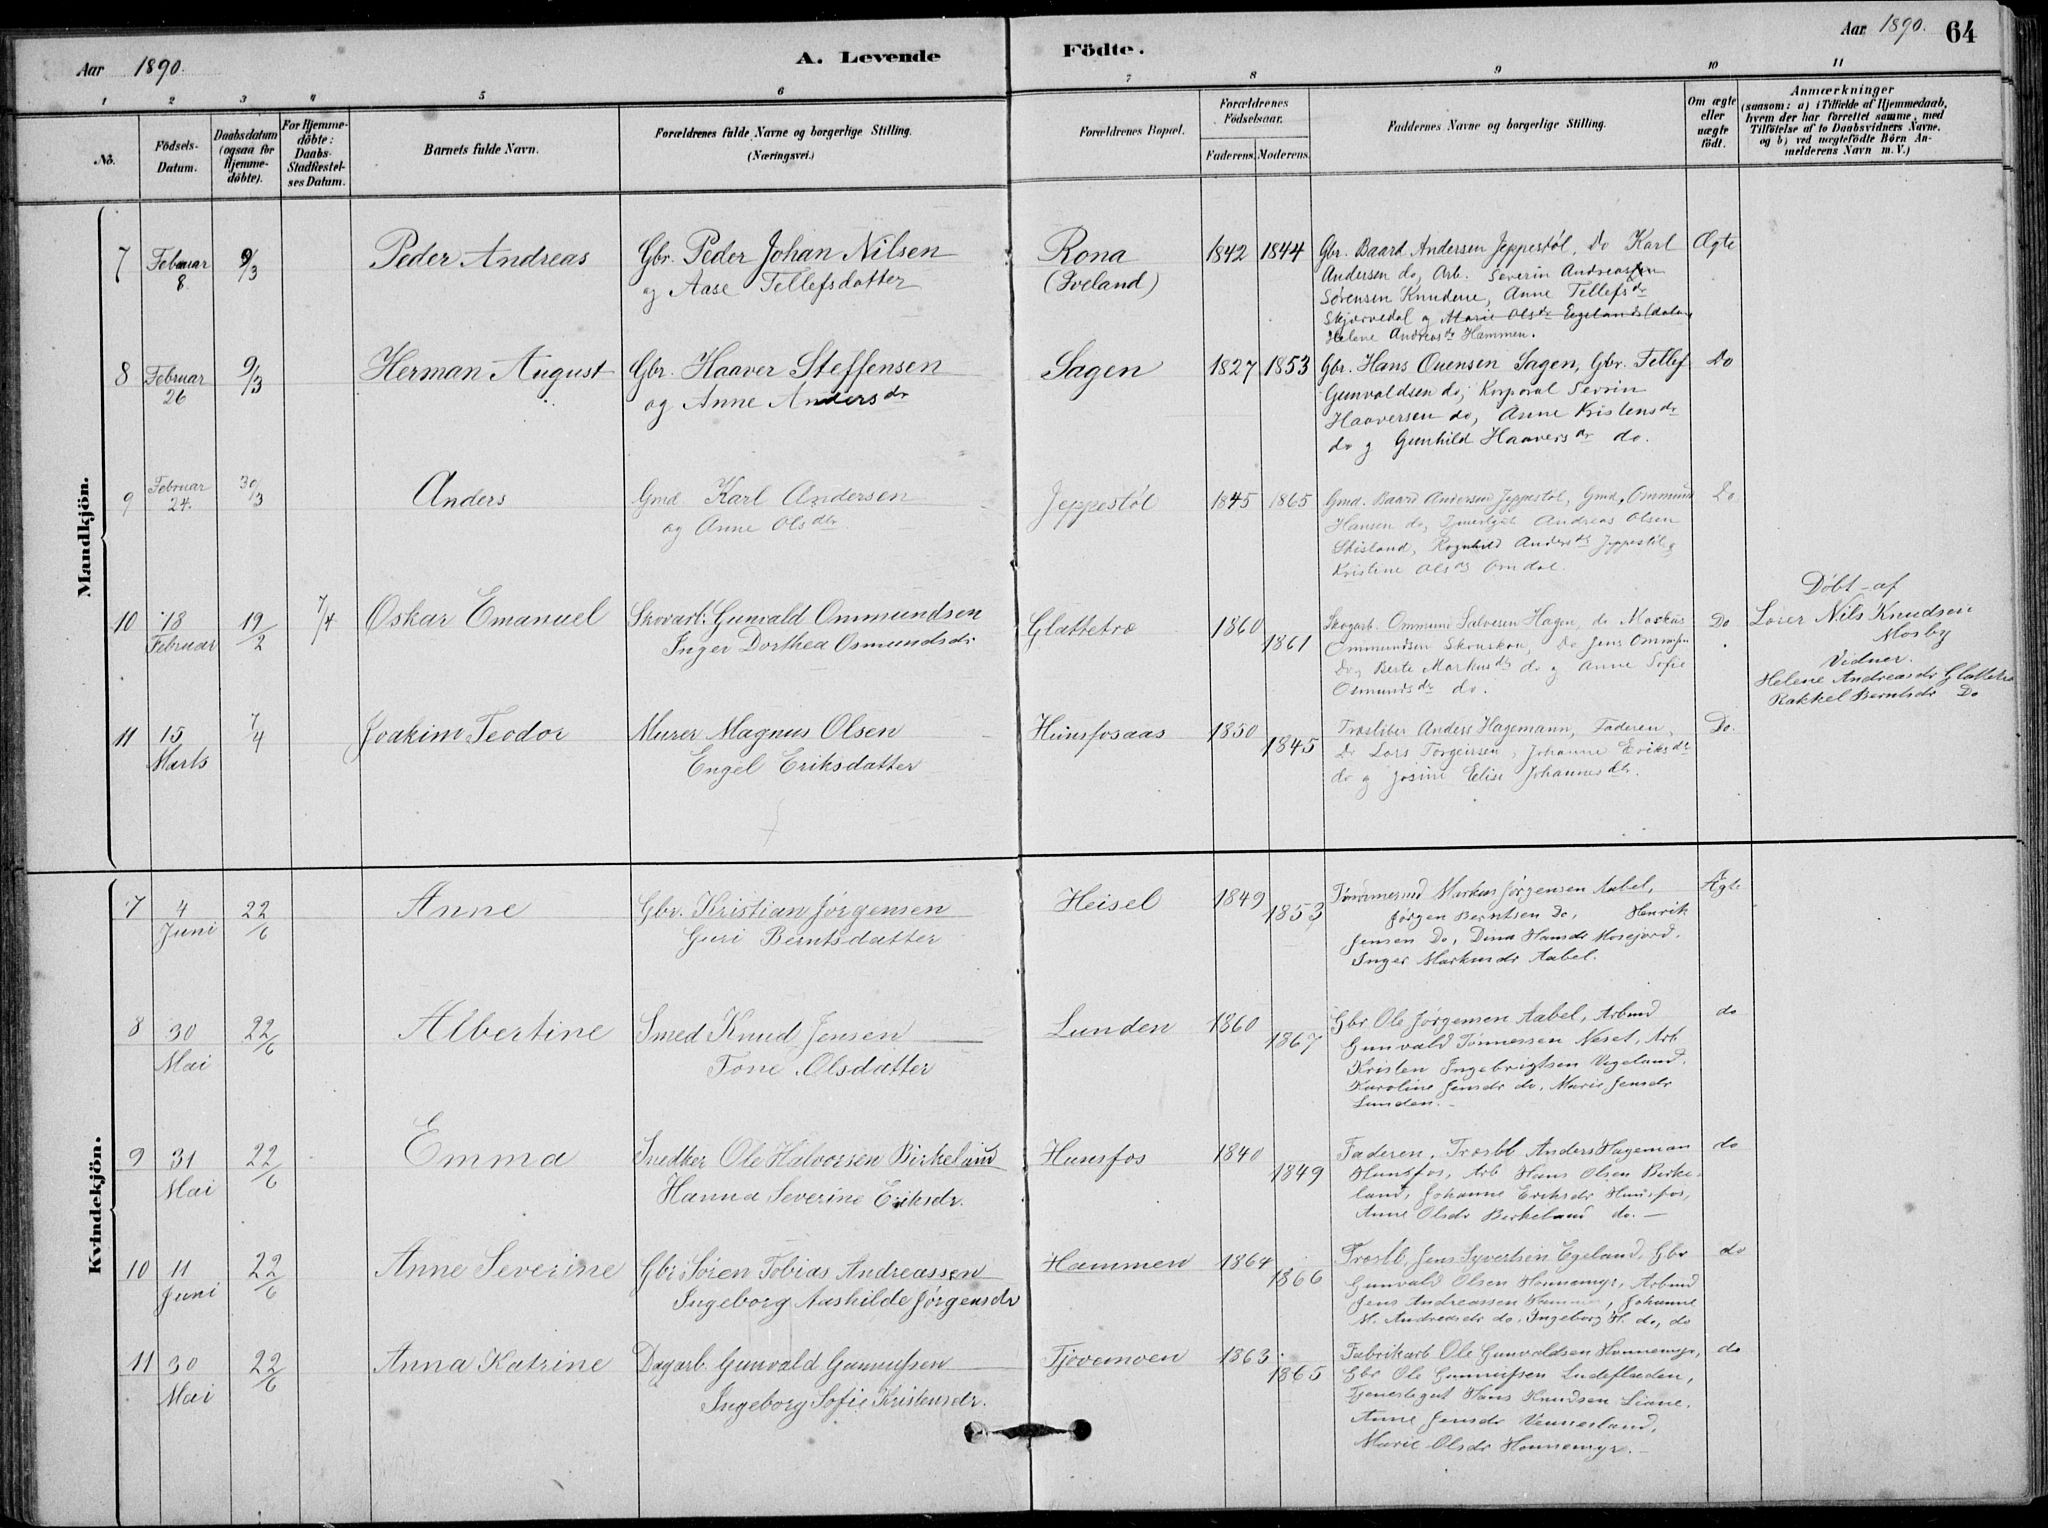 Aar 1890.
A. Levende
Födte.
Aar 1890. 64
1 2 3 4 5 6 7 8 9 10 11
No.
Födsels-
Datum.
Daabsdatum
(ogsaa for
Hjemme-
döbte).
For Hjemme-
döbte:
Daabs-
Stadfæstel-
ses Datum.
Barnets fulde Navn.
Forældrenes fulde Navne og borgerlige Stilling.
(Næringsvei.)
Forældrenes Bopæl.
Forældrenes
Födselsaar.
Faderens. Moderens.
Faddernes Navne og borgerlige Stilling.
Om ægte
eller
uægte
födt.
Anmærkninger
(saasom: a) i Tilfælde af Hjemmedaab,
hvem der har forrettet samme, med
Tilföielse af to Daabsvidners Navne,
og b) ved uægtefödte Börn An-
melderens Navn m. V.)
Mandkjön.
7 Februar 8 9/3 Peder Andreas
Gbr. Peder Johan Nilsen
og Aase Tellefsdatter
Rona
(Iveland)
1842 1844
Gbr. Baard Andersen Jeppestøl, Do Karl
Andersen do, Arb. Severin Andreassen
Sørensen Knudene, Anne Tellefsdr
Skjærvedal og Marie Olsdr Egelands
Helene Andreasdr Hammen.
Ægte
8 Februar 26 9/3 Herman August
Gbr. Haaver Steffensen
og Anne Andersdr
Sagen
1827 1853
Gbr. Hans Ouensen Sagen, Gbr. Tellef
Gunvaldsen do, Korporal Servin
Haaversen do, Anne Kristensdr
do og Gunhild Haaversdr do.
Do
9 Februar 24. 30/3 Anders
Gmd Karl Andersen
og Anne Olsdtr
Jeppestøl
1845 1865
Gmd. Baard Andersen Jeppestøl, Gmd. Ommund
Hansen do, Andreas Olsen
Stisland, Ragnhild Andersdr Jeppestøl,
Kristine Olsdr Omdal.
Do
10 18 Februar 19/2 7/4 Oskar Emanuel
Skovarb. Gunvald Ommundsen
Inger Dorthea Osmundsdr
Glattetræ
1860 1861
Skogarb. Ommund Salvesen Hagen, do Markus
Ommundsen Skouskou, Do Jens
Do, Berte Markusdr do og Anne Sofie
Osmundsdr do.
Do
Döbt af
Lærer Nils Knudsen
Mosby
Vidner.
Helene Andreasdr Glattetræ
Rakkel Berntsdr Do
11 15 Marts 7/4 Joakim Teodor
Murer Magnus Olsen
Engel Eriksdatter
Hunsfosaas
1850 1845
Træsliber Anders Hagemann, Faderen,
Do Lars Torgeirsen, Johanne Eriksdr
do og Josine Elise Johannesdtr.
Do.
Kvindekjön.
7 4 Juni 22/6 Anne
Gbr. Kristian Jørgensen
Guri Berntsdatter
Heisel
1849 1853
Tømmermd Markus Jørgensen Aabel,
Jørgen Berntsen Do, Henrik
Jensen Do, Dina Hansdr Mosejord.
Inger Markusdr Aabel.
Ægte
8 30 Mai 22/6 Albertine
Smed Knud Jensen
Tone Olsdatter
Lunden
1860 1867
Gbr Ole Jørgensen Aabel, Arbmd
Gunvald Tønnessen Neset, Arb
Kristen Ingebrigtsen Vegeland.
Karoline Jensdr do, Marie Jensdr
Lunden.
do
9 31 Mai 22/6 Emma
Snedker Ole Halvorsen Birkeland
Hanna Severine Eriksdr.
Hunsfos
1840 1849
Faderen, Træsbl Anders Hageman
Hunsfos, Arb Hans Olsen Birke-
land, Johanne Eriksdr Hunsfos,
Anne Olsdr Birkeland do.
do
10 11 Juni 22/6 Anne Severine
Gbr Søren Tobias Andreassen
Ingeborg Aashilde Jørgensdr
Hammen
1864 1866
Træslb. Jens Syvertsen Egeland, Gbr
Gunvald Olsen Honnemyr, Arbmd
Jens Andreassen Hammen, Johanne
M. Andreasdr do, Ingeborg H. do, do
do
11 30 Mai 22/6 Anna Katrine
Dagarb. Gunvald Gunnufsen
Ingeborg Sofie Kristensdr.
Tjovemoen
1863 1865
Fabrikarb Ole Gunvaldsen Honnemyr,
Gbr Ole Gunnufsen Ludeflaeden,
Tjenestegut Hans Knudsen Liane,
Anne Jensdr Vennesland,
Marie Olsdr Honnemyr.
do